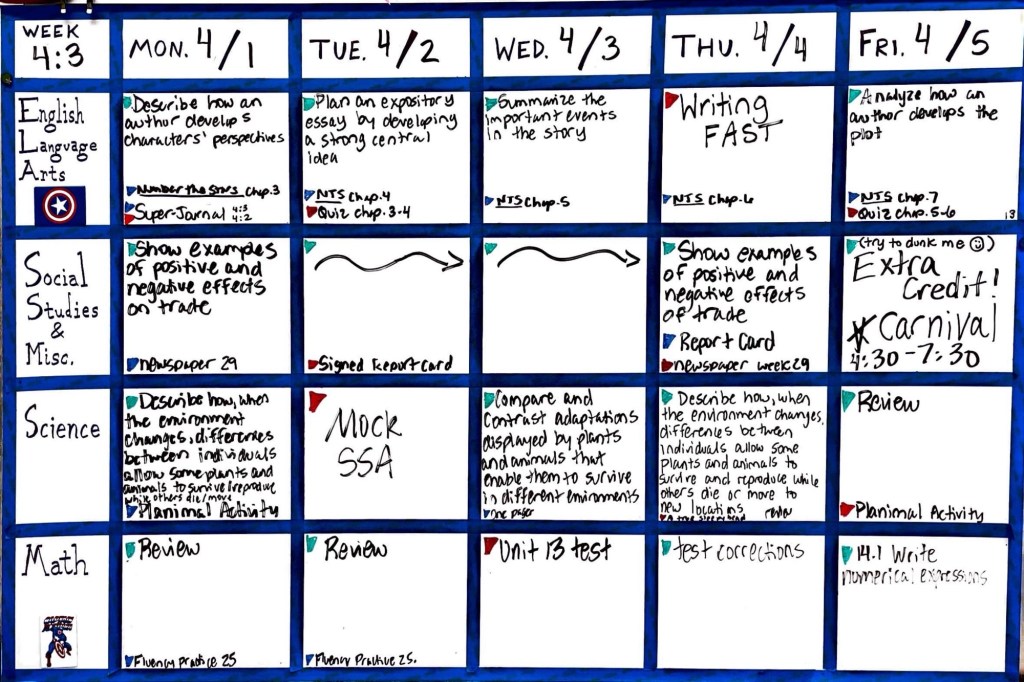 WEEK
4:3
MON. 4/1
TUE. 4/2
WED. 4/3
THU. 4/4
FRI. 4/5
English
Language
Arts
Describe how an
author develops
characters' perspectives
Number the Stars Chap. 3
Super-Journal 4:3
4:2
Plan an expository
essay by developing
a strong central
idea
NTS Chap. 4
Quiz Chap. 3-4
Summarize the
important events
in the story
NTS Chap. 5
Writing
FAST
NTS Chap. 6
Analyze how an
author develops the
plot
NTS Chap. 7
Quiz Chap. 5-6
13
Social
Studies
&
Misc.
Show examples
of positive and
negative effects
on trade
newspaper 29
Signed Report Card
Show examples
of positive and
negative effects
of trade
Report Card
newspaper week 29
(try to dunk me ☺)
Extra
Credit!
Carnival
4:30-7:30
Science
Describe how, when
the environment
changes, differences
between individuals
allow some plants and
animals to survive/reproduce
while others die/move
Planimal Activity
Mock
SSA
Compare and
Contrast adaptations
displayed by plants
and animals that
enable them to survive
in different environments
One pager
Describe how, when
the environment changes,
differences between
individuals allow some
plants and animals to
survive and reproduce while
others die or move to
new locations
Review
Planimal Activity
Math
Review
Fluency Practice 25
Review
Fluency Practice 25.
Unit 13 test
test corrections
14.1 Write
numerical expressions